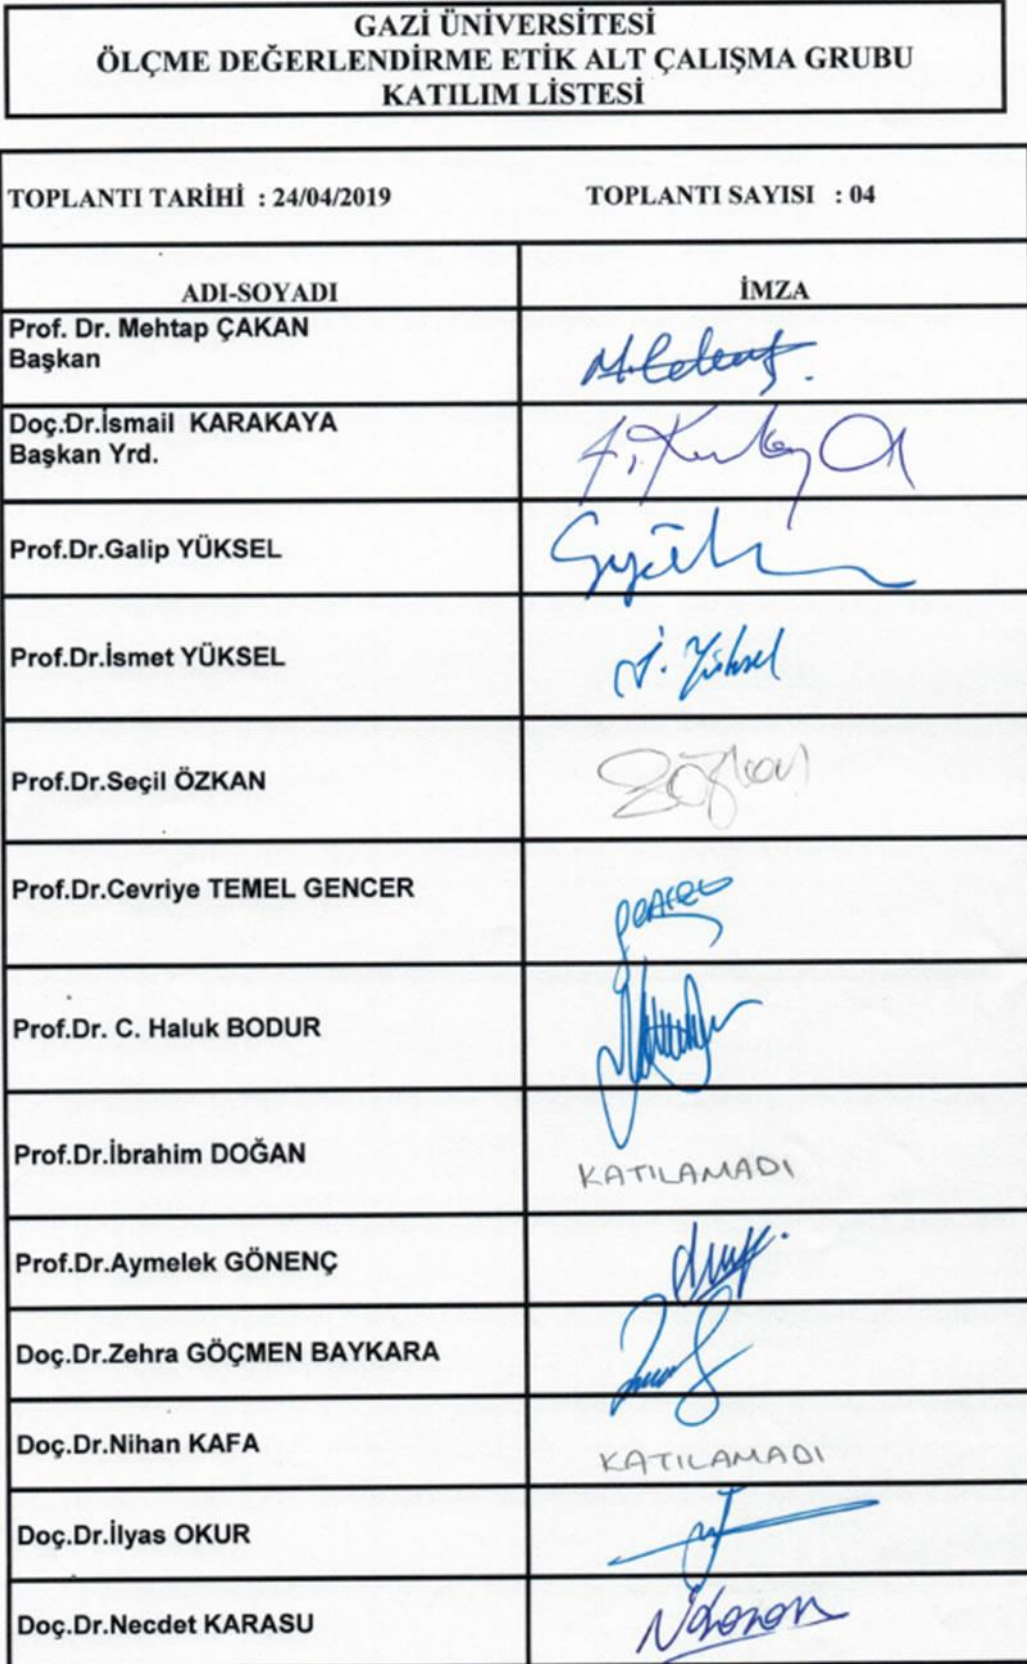 GAZİ ÜNİVERSİTESİ
ÖLÇME DEĞERLENDİRME ETİK ALT ÇALIŞMA GRUBU
KATILIM LİSTESİ
TOPLANTI TARİHİ : 24/04/2019 TOPLANTI SAYISI : 04
ADI-SOYADI İMZA
Prof. Dr. Mehtap ÇAKAN
Başkan
Doç.Dr.İsmail KARAKAYA
Başkan Yrd.
Prof.Dr.Galip YÜKSEL
Prof.Dr.İsmet YÜKSEL İ. Yüksel
Prof.Dr.Seçil ÖZKAN
Prof.Dr.Cevriye TEMEL GENCER
Prof.Dr. C. Haluk BODUR
Prof.Dr.İbrahim DOĞAN KATILAMADI
Prof.Dr.Aymelek GÖNENÇ
Doç.Dr.Zehra GÖÇMEN BAYKARA
Doç.Dr.Nihan KAFA KATILAMADI
Doç.Dr.İlyas OKUR
Doç.Dr.Necdet KARASU